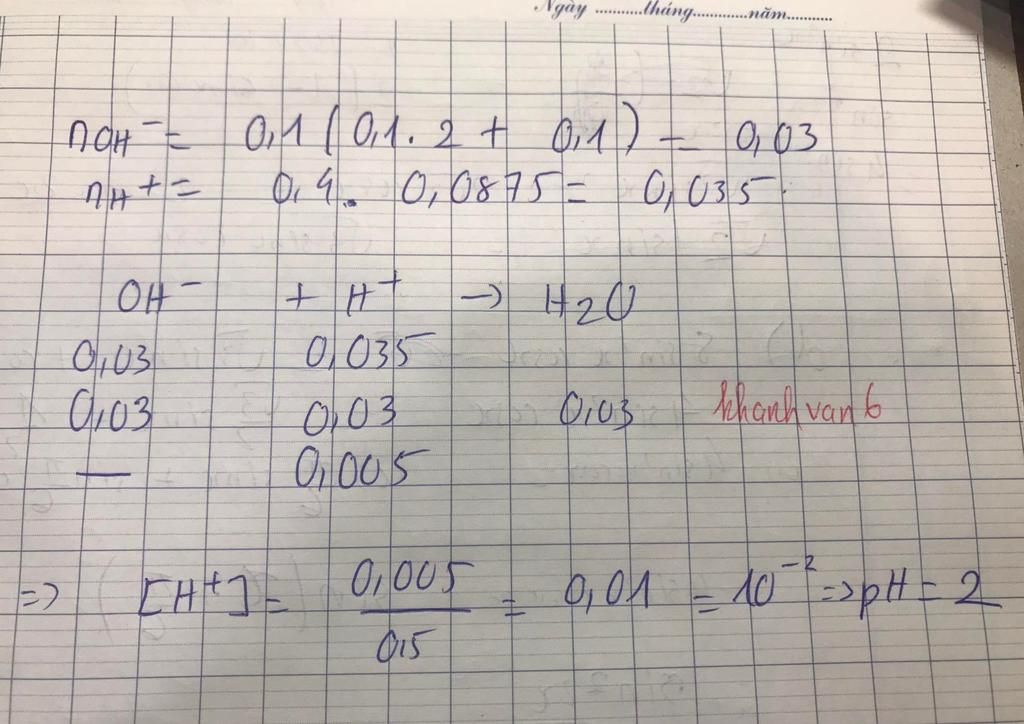 Ngày ............tháng.............năm...........
nOH⁻ = 0,1 ( 0,1 . 2 + 0,1 ) = 0,03
nH⁺ = 0,4 . 0,0875 = 0,035
OH⁻ + H⁺ → H2O
0,03 0,035
0,03 0,03 0,03 khanh van 6
— 0,005
=> [H⁺] = 0,005 / 0,5 = 0,01 = 10⁻² => pH = 2